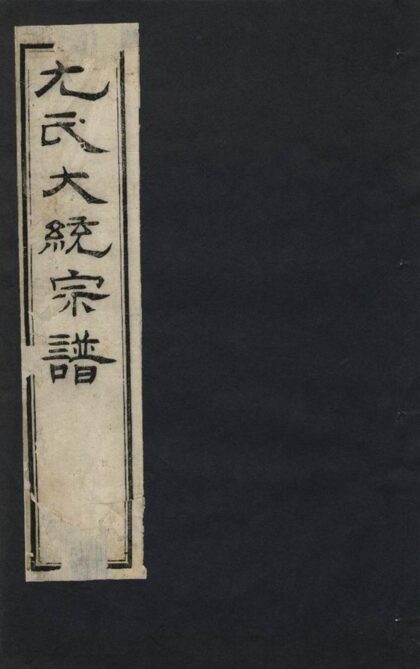 尤氏大統宗譜